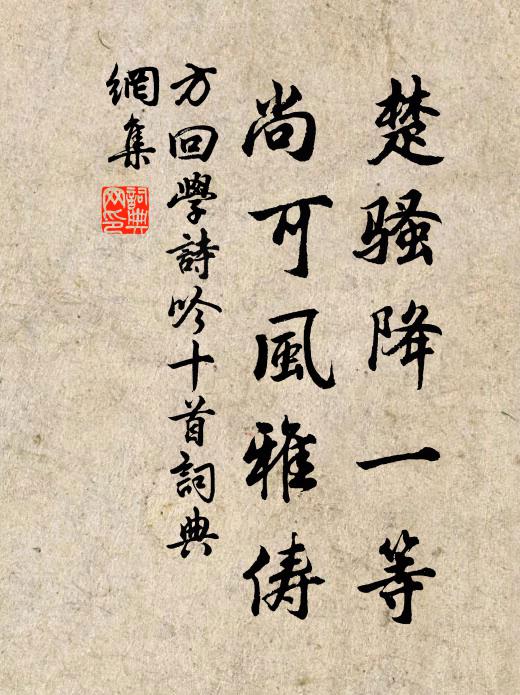 楚騷降一等
尚可風雅儔
方回學詩吟十首詞典
網集
詞典網印